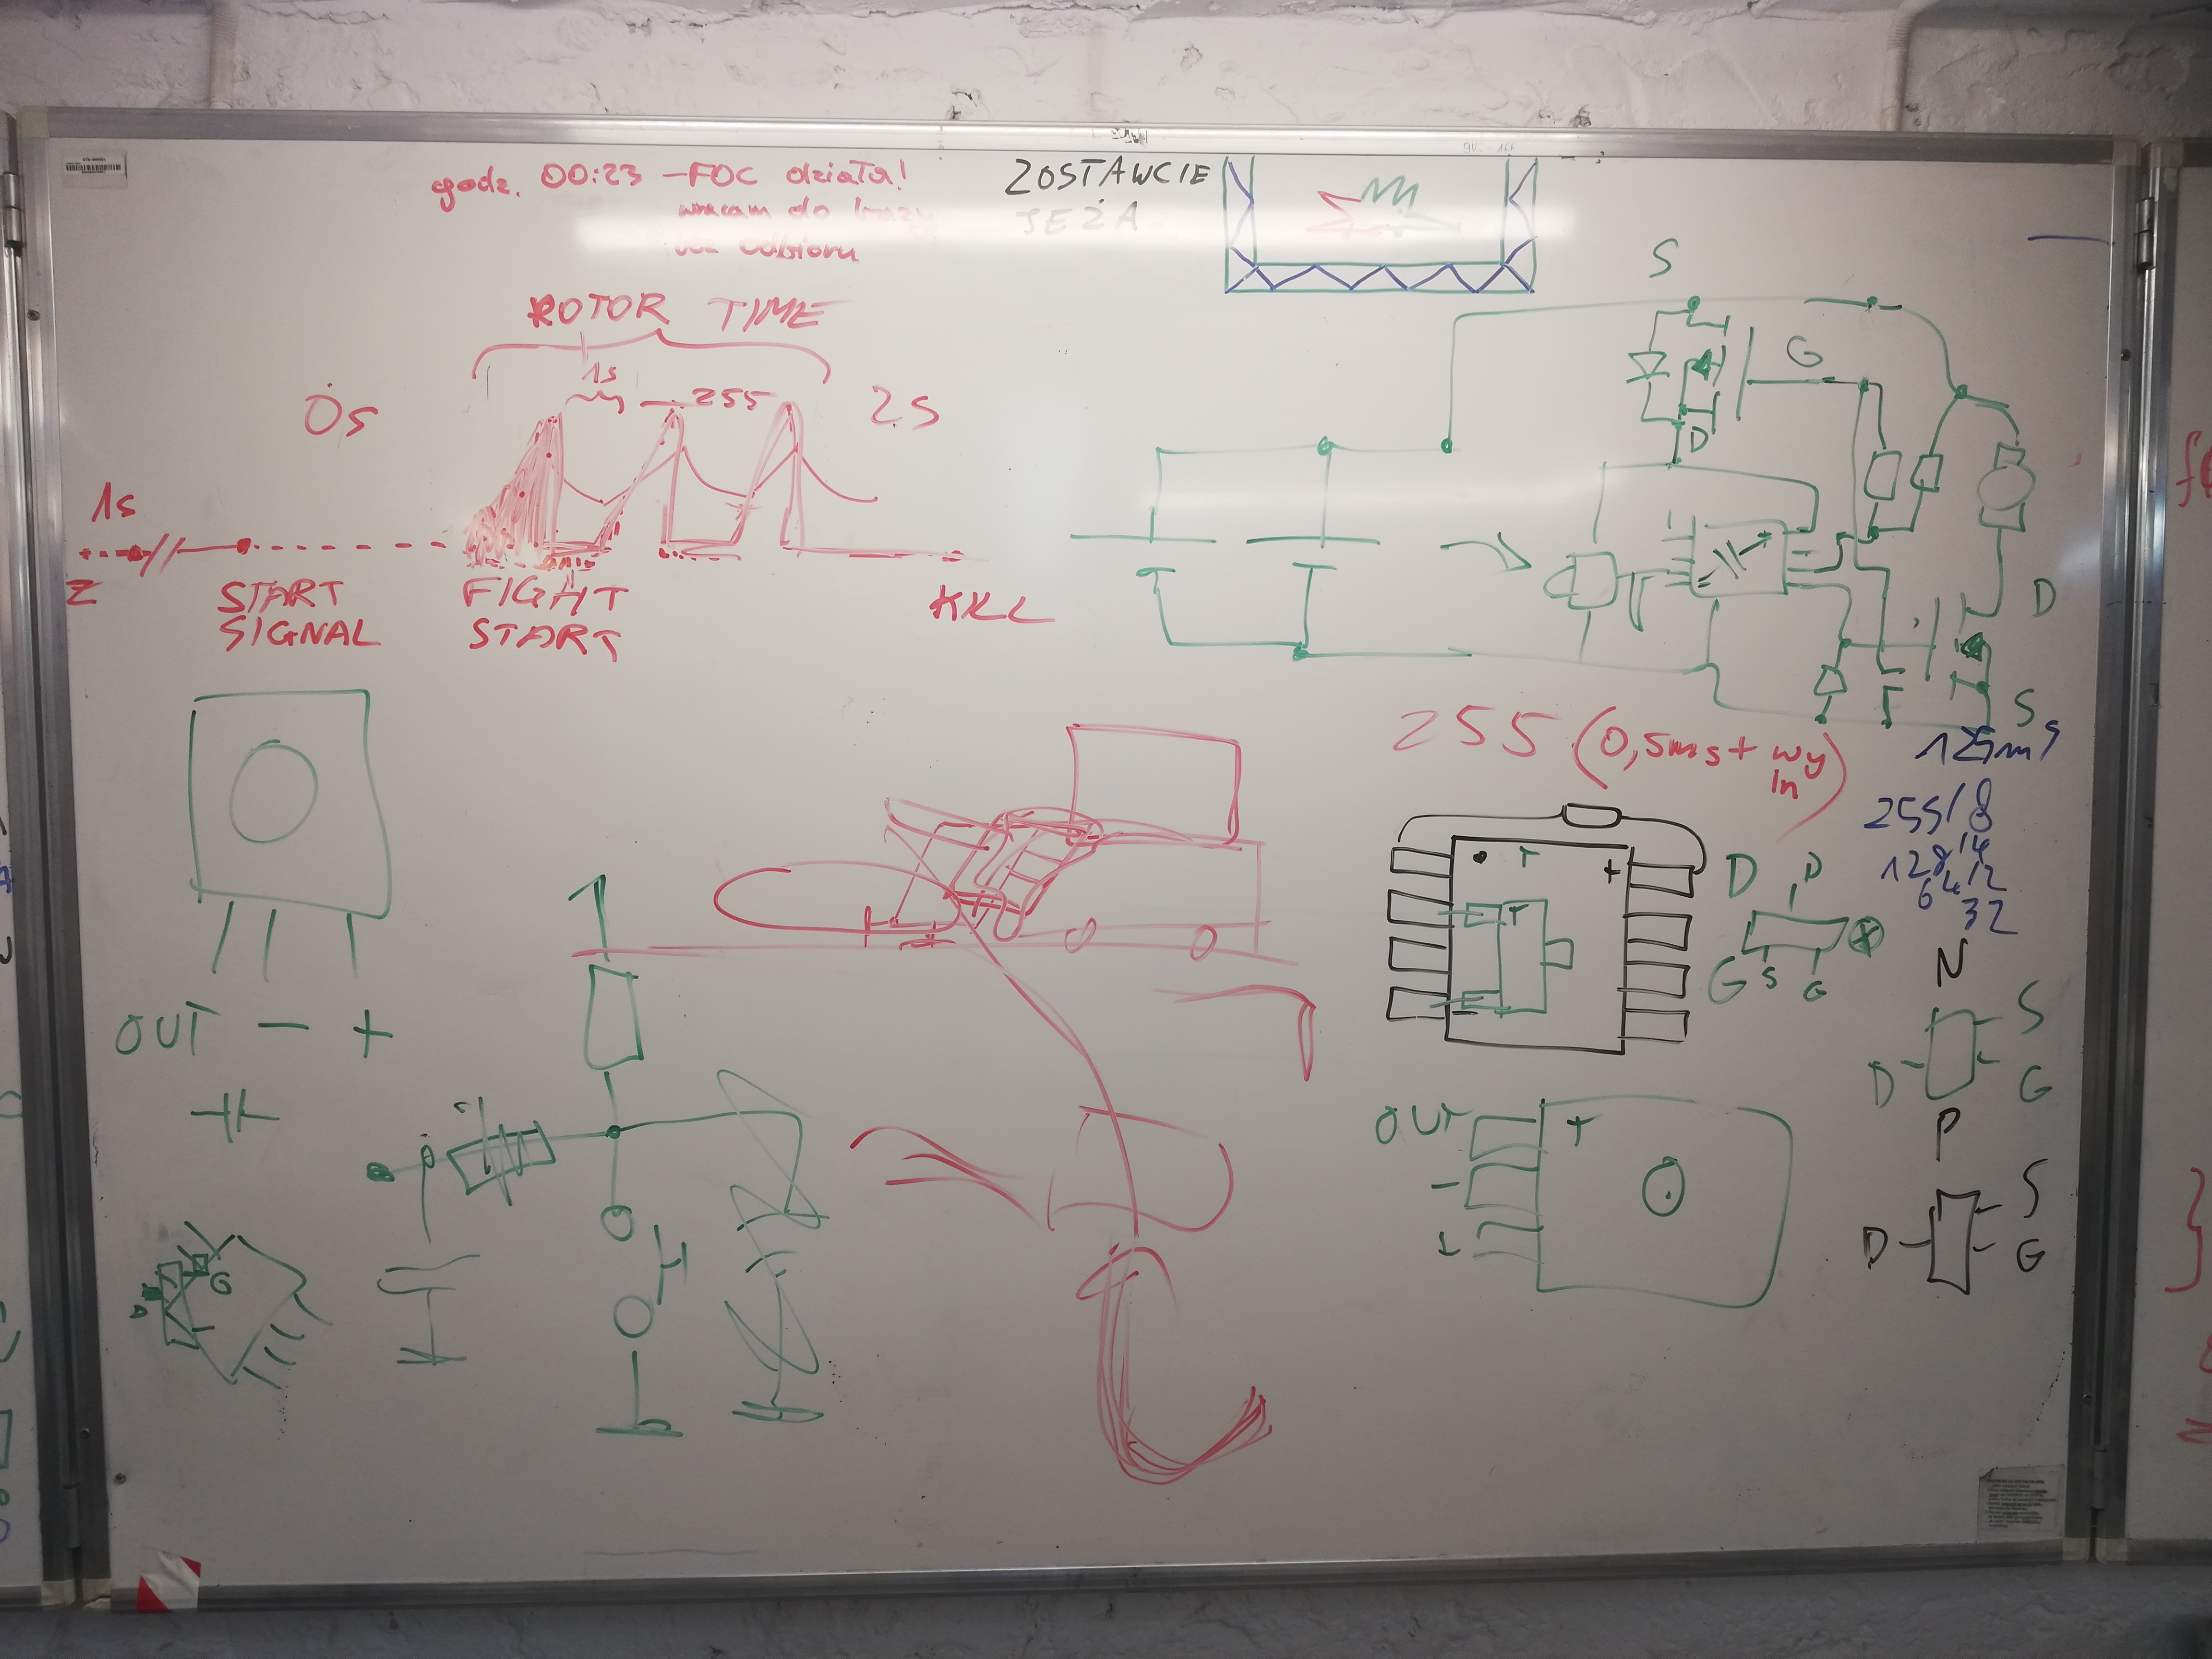 godz. 00:23 – FOC działa!
wracam do bazy
bez odbioru
ZOSTAWCIE
JEŻA
ROTOR TIME
1s
255
0s
2s
1s
Z
START
SIGNAL
FIGHT
START
KILL
S
G
D
D
S
255 (0,5ms + wy
in)
125ms
255/8
128/4
64/2
32
T
+
T
D
D
G
S
G
N
S
D
G
P
S
D
G
OUT - +
G
D
OUT
T
-